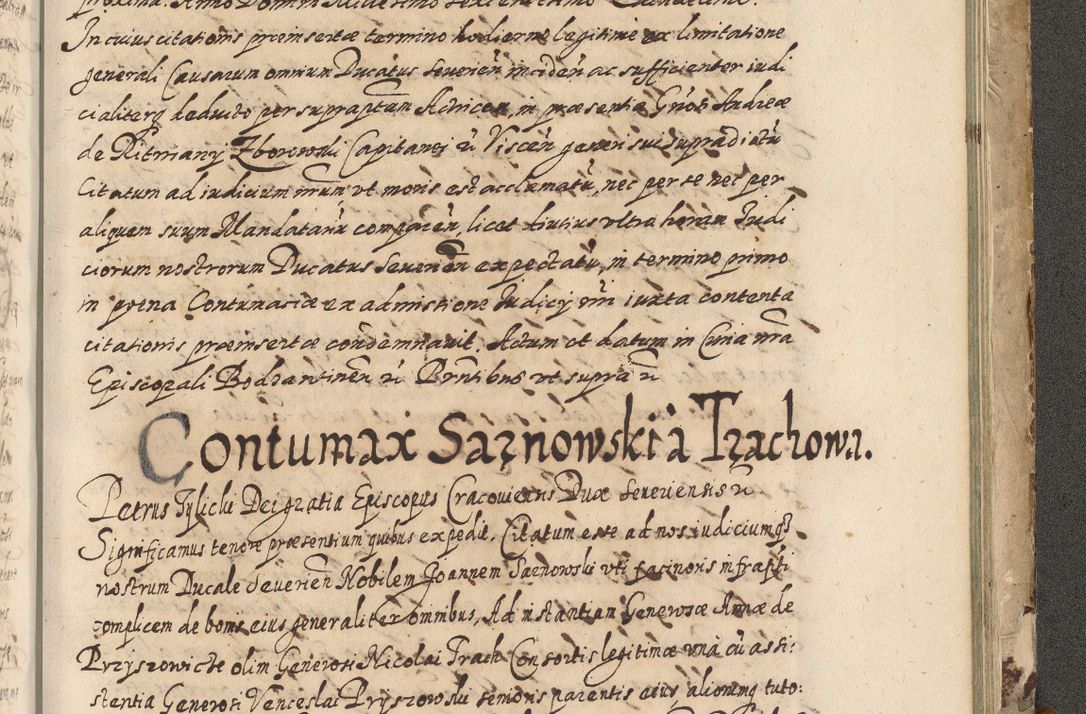 In cuius citationis præinsertæ termino hodierno legitime ex limitatione
generali Causarum omnium Ducatus Severień inciden ac sufficienter iudi
cialiterq deducto per supraptam Actricem, in præsentia Gnosi Andreæ
de Ritwiany Zborowski Capitanei et Viscen generi sui supradictu
Citatum ad iudicium nrum vt moris est acclamatu, nec per se nec per
aliquem suum Mandatariu comparen, licet diutius vltra horam Iudi
ciorum nostrorum Ducatus Severien expectatu, in termino primo
in pœna Contumaciæ ex admistione Iudicij nri iuxta contenta
citationis præinsertæ condemnavit. Actum et datum in Curia nra
Episcopali Bodzantinen et Prntibus vt supra et
Contumax Sarnowski à Trachowa.
Petrus Tylicki Dei gratia Episcopus Cracoviensis Dux Severiensis et
Significamus tenore præsentium quibus expedit. Citatum esse ad nos iudiciumq
nostrum Ducale Severien Nobilem Joannem Sarnowski vti facinoris infrapti
complicem de bonis eius generaliter omnibus, Ad instantiam Generosæ Annæ de
Przyszowicze olim Generosi Nicolai Trach Consortis legitimæ vna cu assi:
stentia Generosi Venceslai Pryszowski senioris parentis eius, aliorumq tuto: